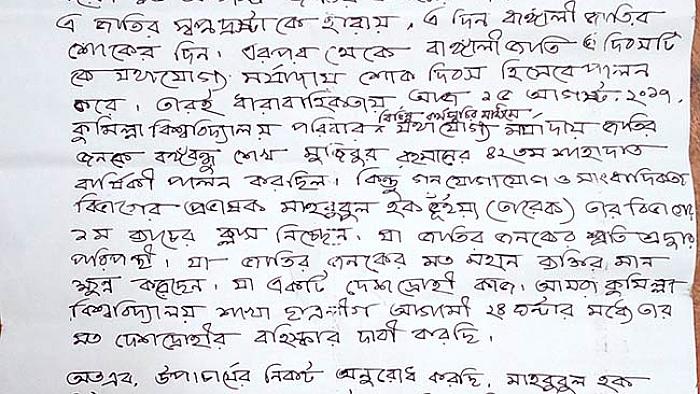 এ জাতির স্বপ্নদ্রষ্টাকে হারায়, এ দিন বাঙ্গালী জাতির
শোকের দিন। এরপর থেকে বাঙ্গালী জাতি এ দিবসটি
কে যথাযোগ্য মর্যাদায় শোক দিবস হিসেবে পালন
করে। তারই ধারাবাহিকতায় আজ ১৫ আগস্ট, ২০১৭,
বিভিন্ন কর্মসূচির মাধ্যমে
কুমিল্লা বিশ্ববিদ্যালয় পরিবার যথাযোগ্য মর্যাদায় জাতির
জনকে বঙ্গবন্ধু শেখ মুজিবুর রহমানের ৪২তম শাহাদাত
বার্ষিকী পালন করছিল। কিন্তু গনযোগাযোগ ও সাংবাদিকতা
বিভাগের প্রভাষক মাহবুবুল হক ভূঁইয়া (তারেক) তার বিভাগের
১ম ব্যাচের ক্লাস নিচ্ছেন। যা জাতির জনকের প্রতি শ্রদ্ধার
পরিপন্থী। যা জাতির জনকের মত মহান ব্যক্তির মান
ক্ষুন্ন করেছেন। যা একটি দেশদ্রোহী কাজ। আমরা কুমিল্লা
বিশ্ববিদ্যালয় শাখা ছাত্রলীগ আগামী ২৪ ঘন্টার মধ্যে তার
মত দেশদ্রোহীর বহিস্কার দাবী করছি।
অতএব, উপাচার্যের নিকট অনুরোধ করছি, মাহবুবুল হক